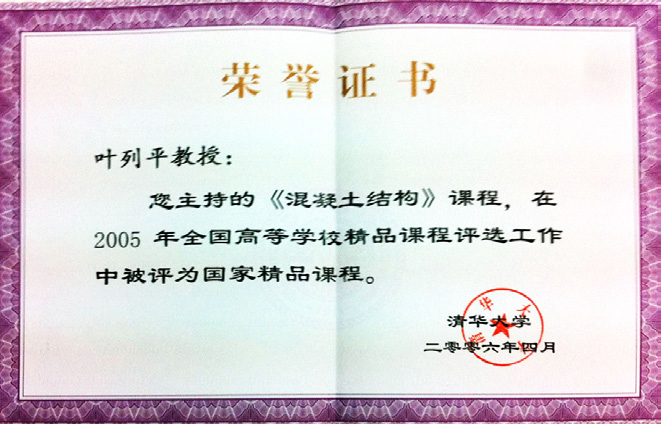 荣誉证书
叶列平教授：
您主持的《混凝土结构》课程，在
2005 年全国高等学校精品课程评选工作
中被评为国家精品课程。
清华大学
二零零六年四月